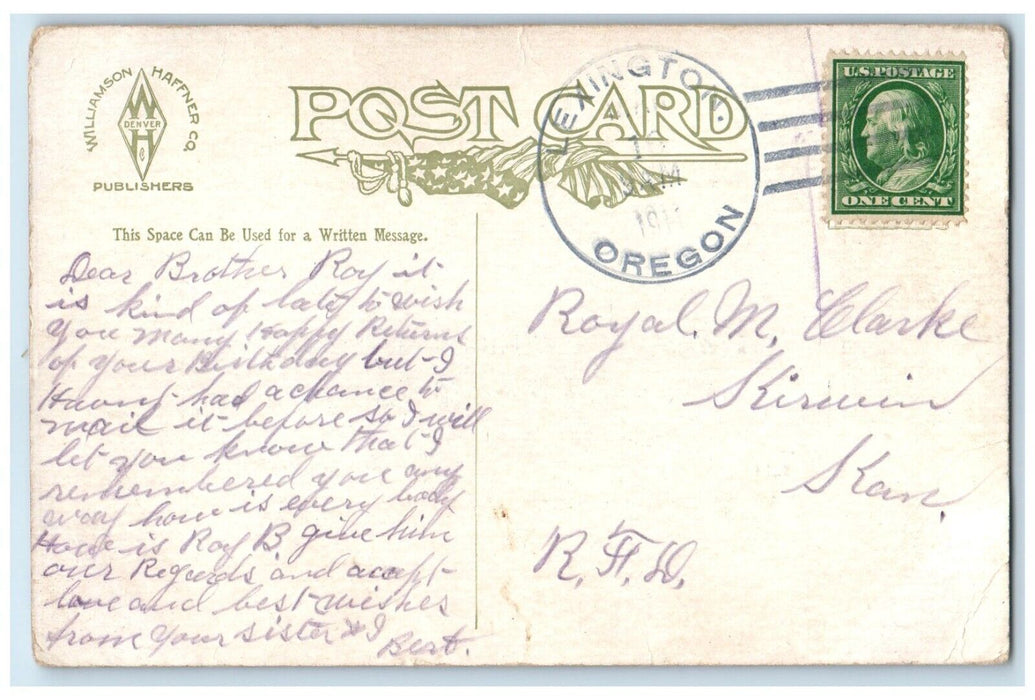 WILLIAMSON HAFFNER CO.
W
DENVER
H
C
PUBLISHERS
POST CARD
LEXINGTON.
OREGON
U.S. POSTAGE
ONE CENT
This Space Can Be Used for a Written Message.
Dear Brother Roy it
is kind of late to wish
you many Happy Returns
of your Birthday but I
Havnt had a chance to
mail it before so I will
let you know that I
remembered you any
way how is every body
How is Roy B. give him
our Regards and accept
love and best wishes
from your sister & I
Bert.
Royal. M, Clarke
Kirwin
Kan,
R. F. D.